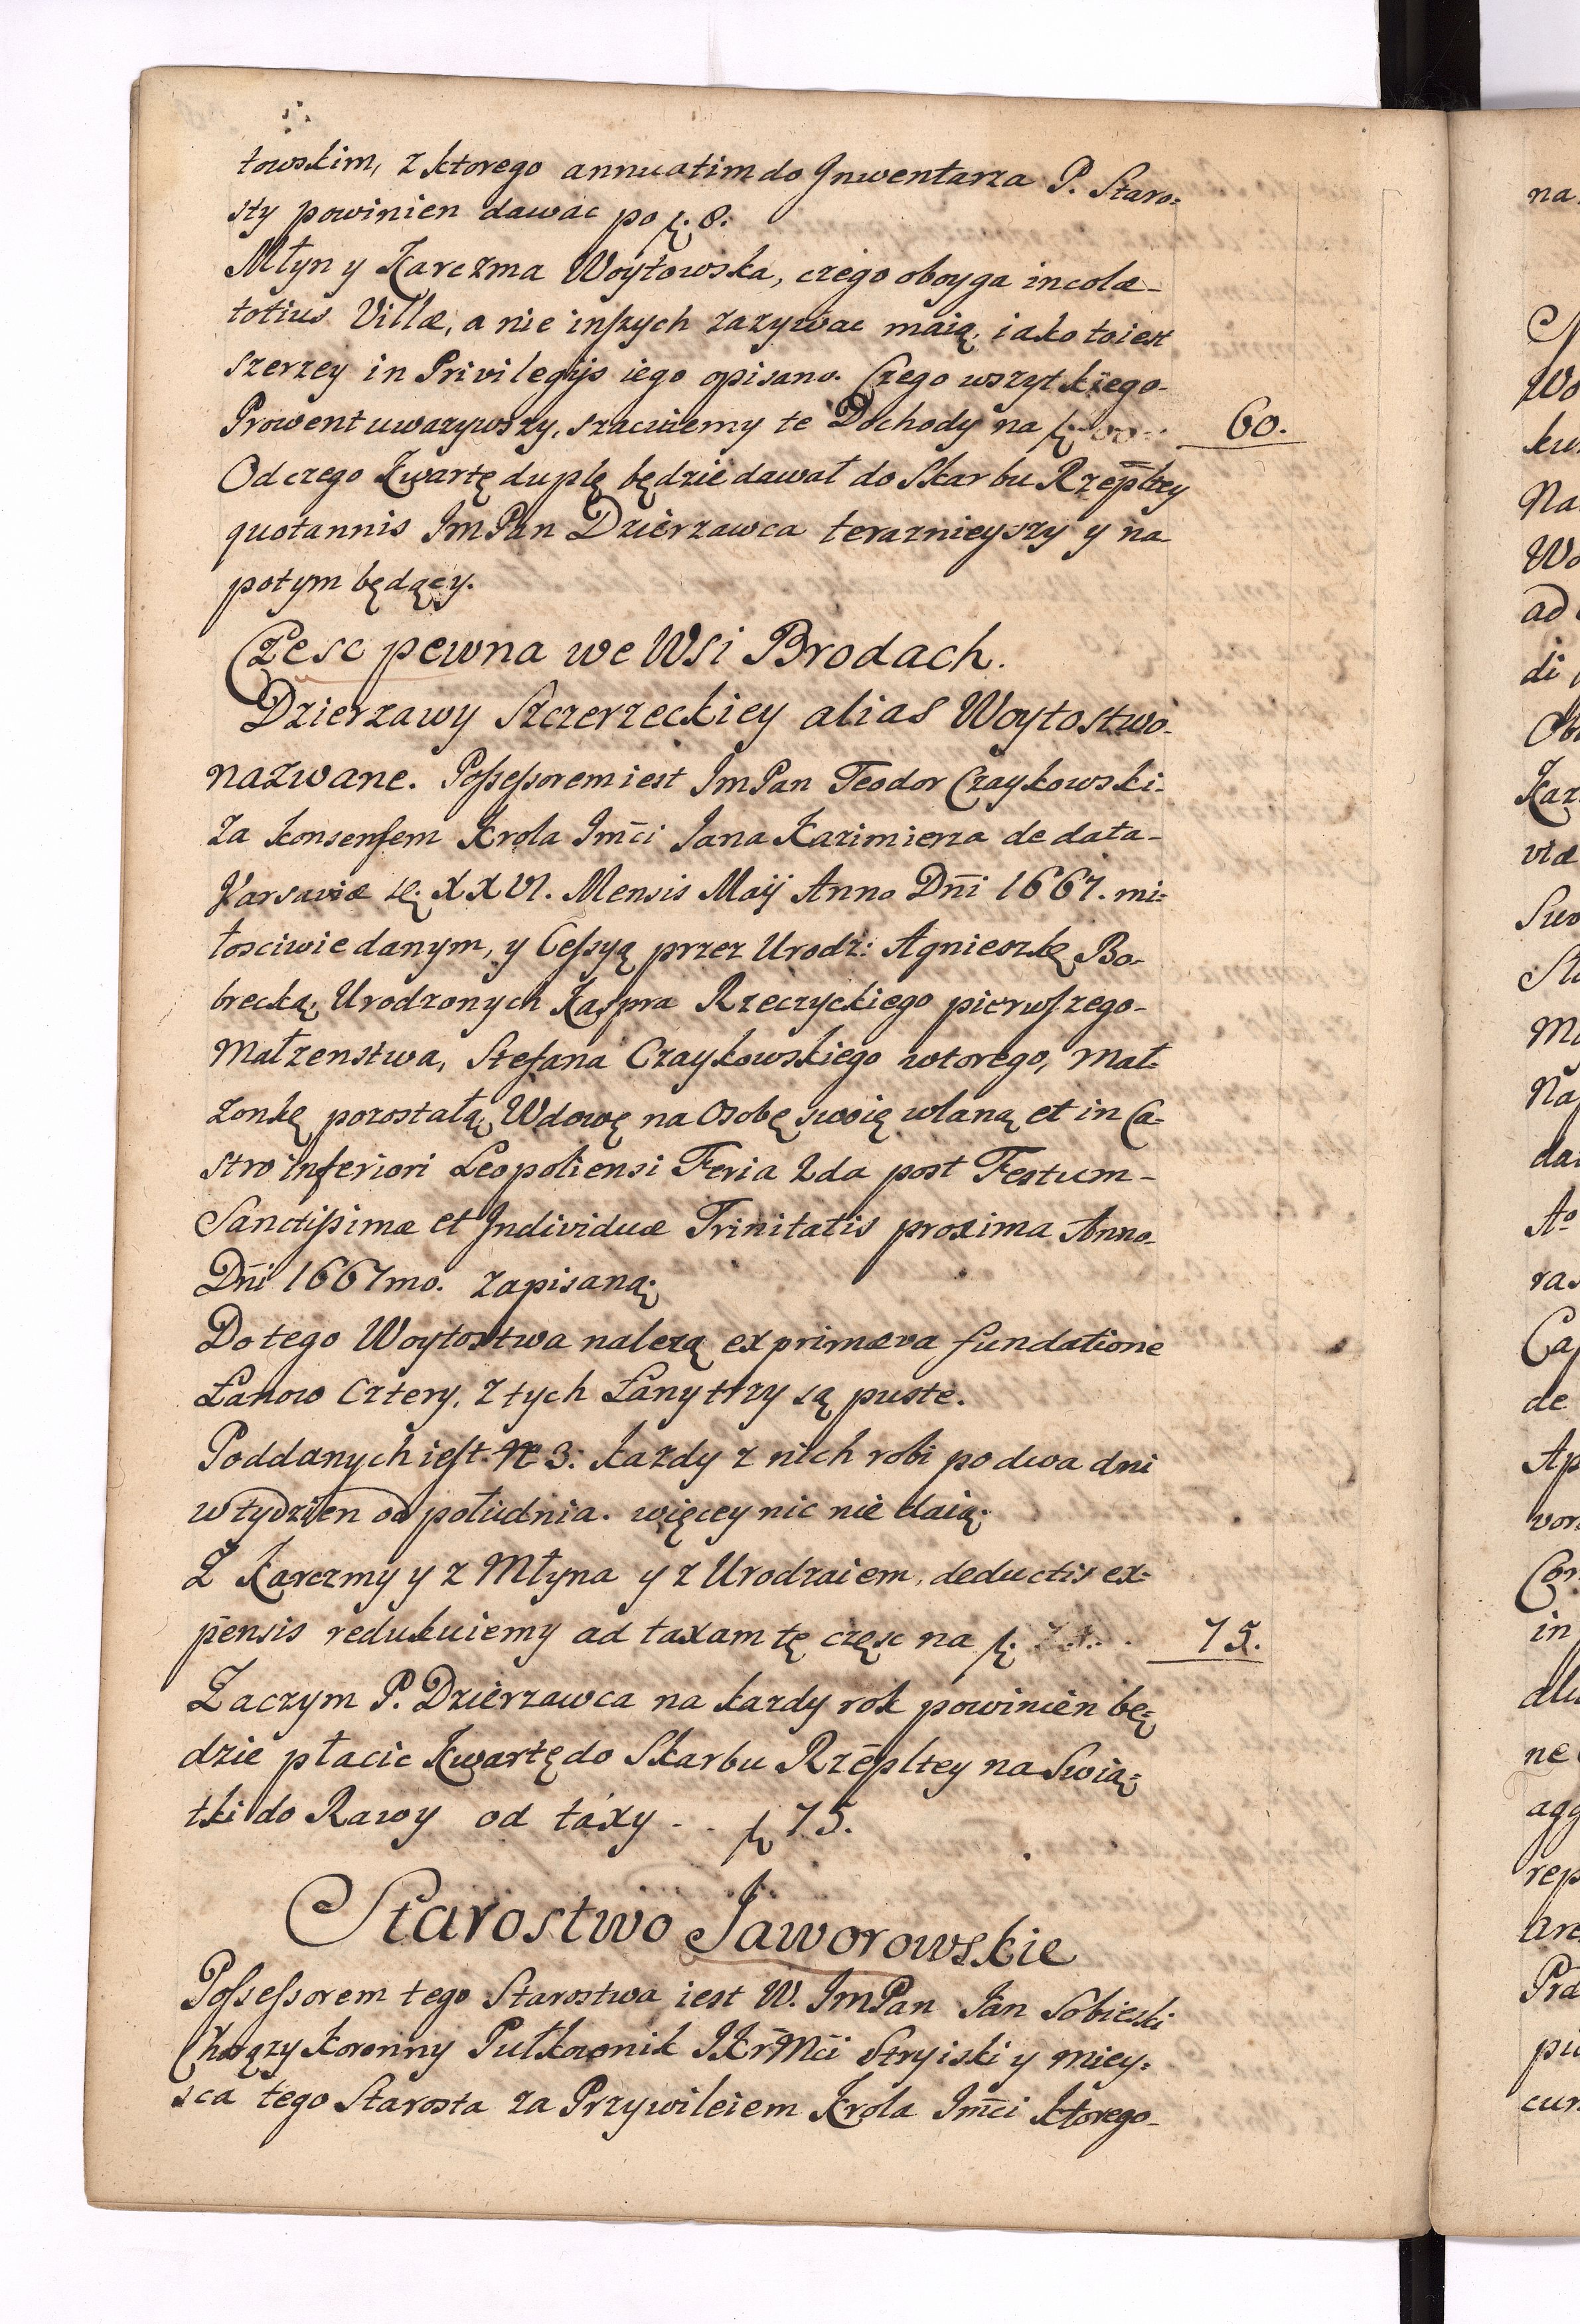 towskim, z ktorego annuatim do Jnwentarza P. Staro=
sty powinien dawac po f. 8.
Młyn y Karczma Woytowska, czego oboyga incolæ
totius Villæ, a nie inszych zazywac maią, iako to iest
szerzey in Privilegijs iego opisano. Czego wszytkiego
Prowent uwazywszy, szacuiemy te Dochody na f. 60.
Od czego Kwartę duplę będzie dawał do Skarbu Rzepltey
quotannis JmPan Dzierzawca terazniejszy y na
potym będący.
Częsc pewna we Wsi Brodach.
Dzierzawy Szczerzeckiey alias Woytostwo
nazwane. Possessorem iest JmPan Teodor Czaykowski
za konsensem Krola Jmci Jana Kazimierza de data
Varsaviæ XXVI. Mensis Maij Anno Dni 1667. mi=
łosciwie danym, y Cessyą przez Urodz: Agnieszkę Bo=
brecką, Urodzonych Kaspra Rzeczyckiego pierwszego
Małzenstwa, Stefana Czaykowskiego wtorego, mał=
zonkę pozostałą, Wdowę na Osobę swoię wlaną et in Ca=
stro inferiori Leopoliensi Feria 2da post Festum
Sanctissimæ et Individuæ Trinitatis proxima Anno
Dni 1667mo. zapisaną.
Do tego Woytostwa nalezą ex primæva fundatione
Łanow Cztery, z tych Łany trzy są puste.
Poddanych iest. No 3: kazdy z nich robi po dwa dni
w tydzien od południa. więcey nic nie daią.
Z Karczmy y z Młyna y z Urodzaiem, deductis ex=
pensis redukuiemy ad taxam tę częsc na f. 75.
Zaczym P. Dzierzawca na kazdy rok powinien bę=
dzie płacic Kwartę do Skarbu Rzepltey na Swią=
tki do Rawy od taxy . . f 75.
Starostwo Jaworowskie
Possessorem tego Starostwa iest W. JmPan Jan Sobieski
Chorązy Koronny Pułkownik JKrMci Stryiski y miey=
sca tego Starosta za Przywileiem Krola Jmci ktorego